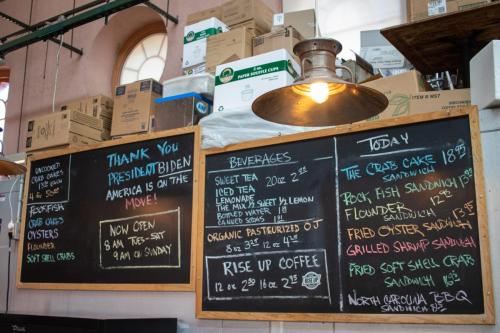 PAPER SOUFFLE CUPS
UNCOOKED
CRAB CAKES
ROCKFISH
CRAB CAKES
OYSTERS
FLOUNDER
SOFT SHELL CRABS
THANK YOU
PRESIDENT BIDEN
AMERICA IS ON THE
MOVE!
NOW OPEN
8 AM TUES-SAT
9 AM ON SUNDAY
BEVERAGES
SWEET TEA
ICED TEA 20oz 2.50
LEMONADE
THE MIX ½ SWEET ½ LEMON
BOTTLED WATER 1.00
CANNED SODAS
ORGANIC PASTEURIZED OJ
8 oz 3.25 12 oz 4.25
RISE UP COFFEE
12 oz 2.50 16 oz 2.75
TODAY
THE CRAB CAKE 18.95
SANDWICH
ROCK FISH SANDWICH
FLOUNDER 12.95
SANDWICH
FRIED OYSTER SANDWICH 13.95
GRILLED SHRIMP SANDWICH
FRIED SOFT SHELL CRAB
SANDWICH
NORTH CAROLINA BBQ
SANDWICH